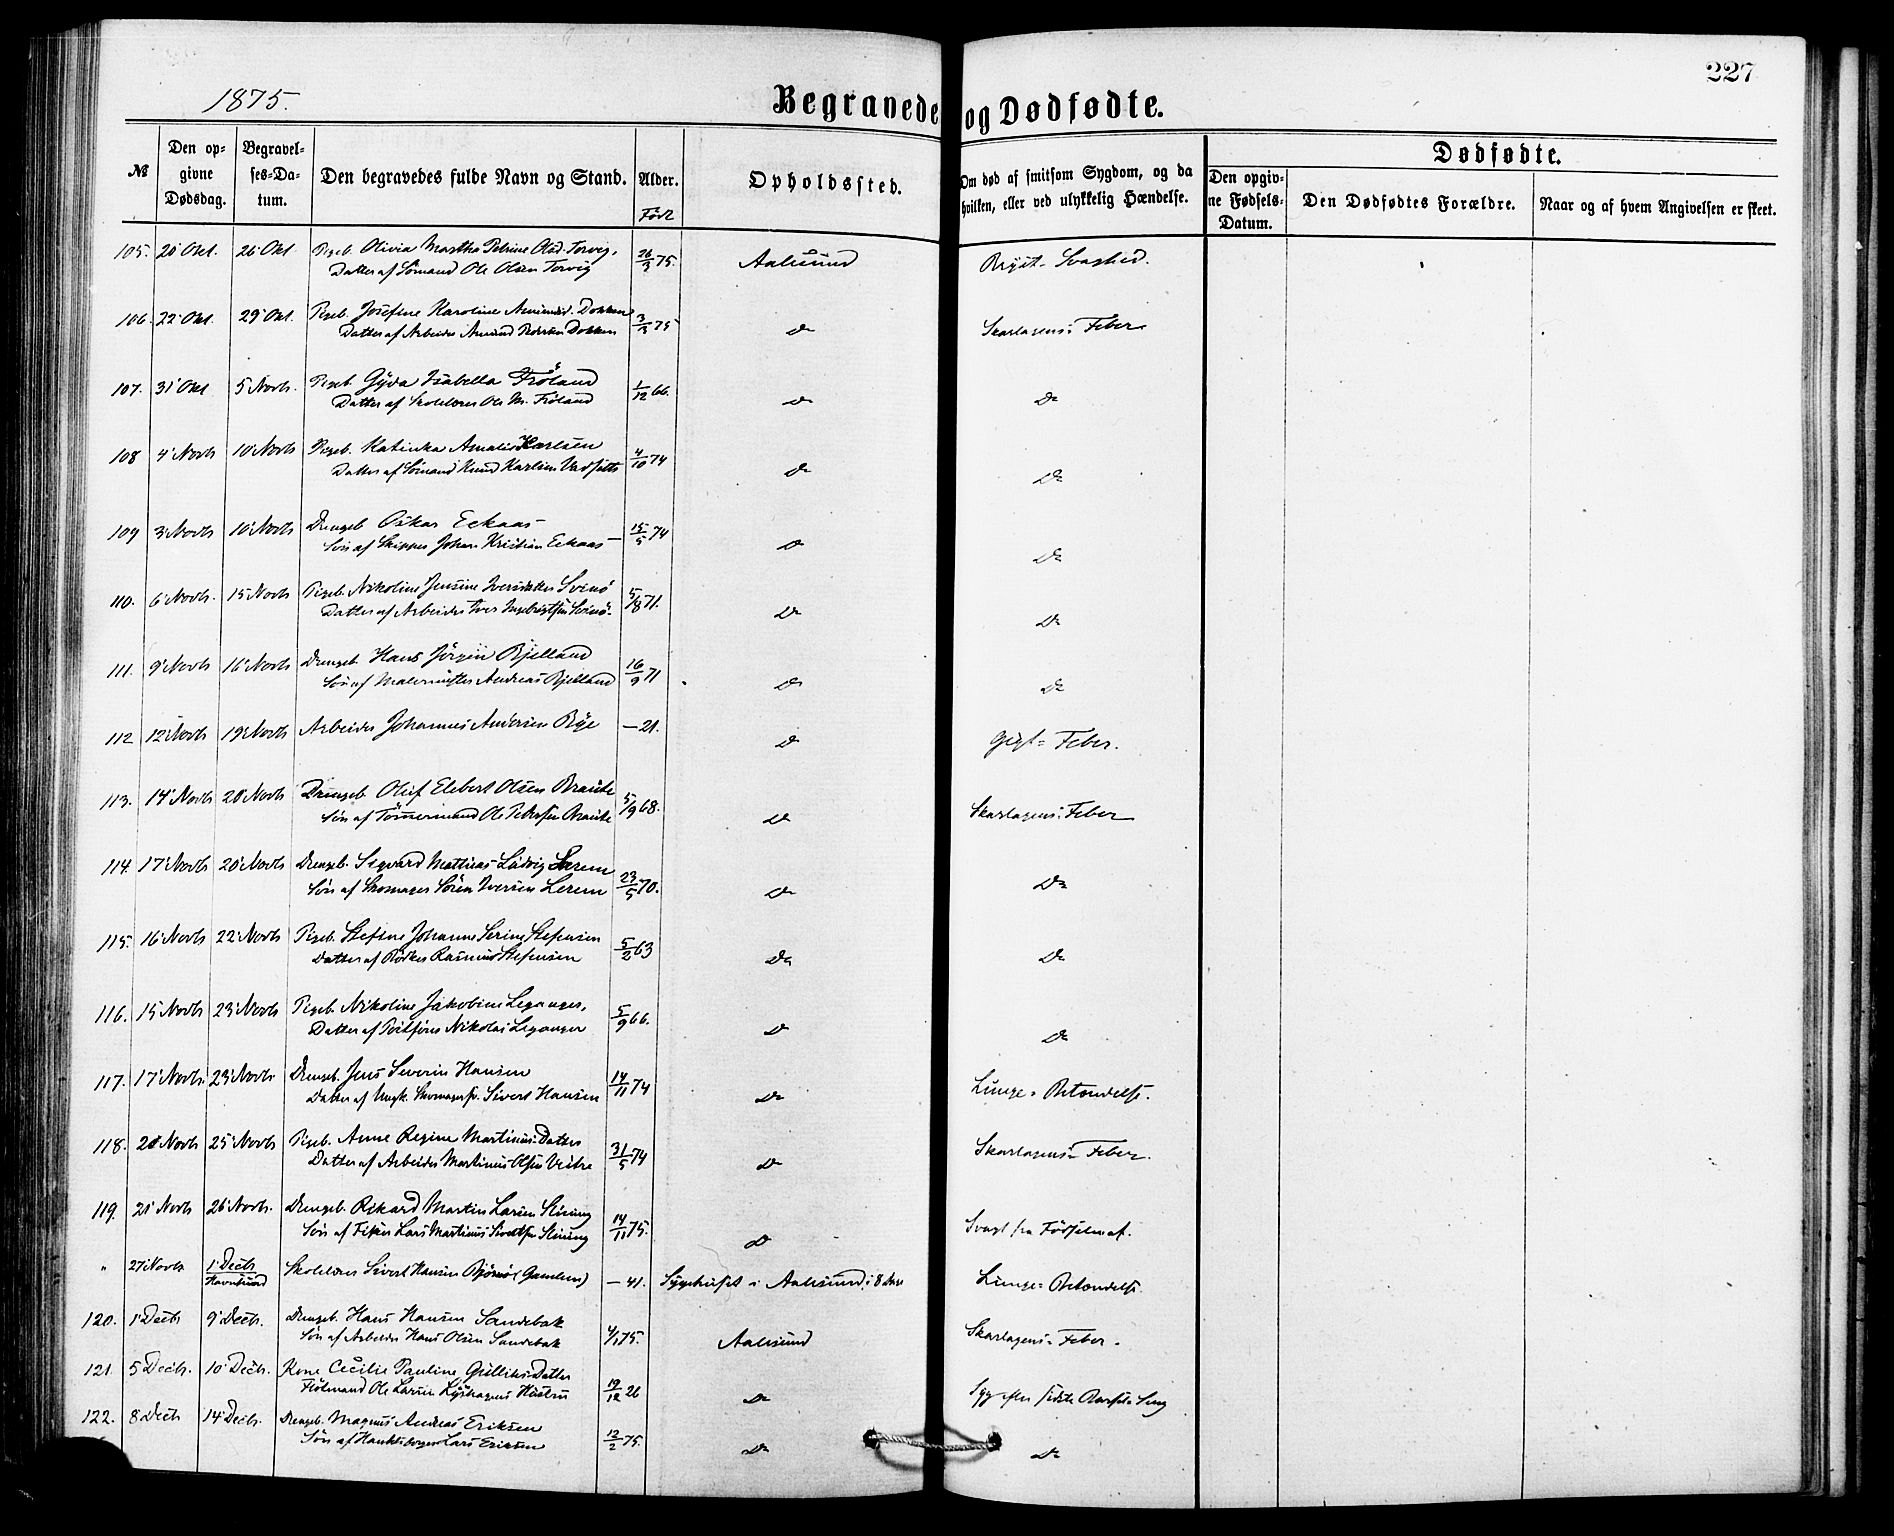 1875.
Begravede og Dødfødte.
227
№
Den op-
givne
Dødsdag.
Begravel-
ses-Da-
tum.
Den begravedes fulde Navn og Stand.
Alder.
Født
Opholdssted.
Om død af smitsom Sygdom, og da
hvilken, eller ved ulykkelig Hændelse.
Dødfødte.
Den opgiv-
ne Fødsels-
Datum.
Den Dødfødtes Forældre.
Naar og af hvem Angivelsen er skeet.
105. 20 Okt. 26 Okt Pigeb. Olivia Martha Petrine Olsd. Torvig, 26/3 75. Aalesund Bryst-Svaghed.
Datter af Sömand Ole Olsen Torvig
106. 22 Okt. 29 Okt. Pigeb. Josefine Karoline Amundsd. Dokken 3/3 75 Do Skarlagens-Feber
Datter af Arbeider Amund Dokken
107. 31 Okt 5 Novb. Pigeb. Gyda Isabella Fröland 1/12 66. Do Do
Datter af Skolelærer Ole M. Fröland
108 4 Novb 10 Novb Pigeb. Katinka Amalie Karlsen 4/10 74 Do Do
Datter af Sömand Knud Karlsen
109 3 Novb 10 Novb Drengeb. Oskar Eckaas 15/5 74 Do Do
Sön af Skipper Johan Kristian Eckaas
110. 6 Novb. 15 Novb Pigeb. Nikoline Jensine Iversdatter Svinö 5/8 71. Do Do
Datter af Arbeider Iver Ingebrigtsen Svinö.
111. 9 Novb 16 Novb Drengeb. Hans Jörgen Bjelland 16/9 71 Do Do
Sön af Malermester Andreas Bjelland
112 12 Novb 19 Novb Arbeider Johannes Andersen Bye — 21. Do Gigt-Feber.
113. 14 Novb 20 Novb Drengeb. Oluf Elebert Olsen Braute 5/9 68. Do Skarlagens-Feber
Sön af Tömmermand Ole Petersen Braute
114. 17 Novb 20 Novb Drengeb. Sigvard Mathias Ludvig Lerem 23/5 70. Do Do
Sön af Skomager Sören Iversen Lerem
115. 16 Novb 22 Novb Pigeb. Stefine Johanne Serine Stefensen 5/2 63 Do Do
Datter af Bödker Rasmus Stefensen
116. 15 Novb 23 Novb Pigeb. Nikoline Jakobine Leganger, 5/9 66. Do Do
Datter af Nikolai Leganger
117. 17 Novb. 23 Novb. Drengeb. Jens Severin Hansen 14/11 74 Do Lunge-Betændelse.
Datter af Ungk. Skomagersv. Sivert Hansen
118. 20 Novb 25 Novb Pigeb. Anne Regine Martinus-Datter 31/5 74 Do Skarlagens-Feber.
Datter af Arbeider Martinus Olsen
119. 21 Novb 26 Novb. Drengeb. Rikard Martin Larsen 14/11 75. Do Svagt fra Födselen af.
Sön af Fisker Lars Martinus
" 27 Novb 1 Decb Skolelærer Sivert Hansen Björnö (Gamlem) — 41. Sygehuset i Aalesund i 8 Lunge-Betændelse.
Havnsund
120. 1 Decb 9 Decb. Drengeb. Hans Hansen Sandebak 4/1 75. Aalesund Skarlagens-Feber.
Sön af Arbeider Hans Olsen Sandebak
121. 5 Decb. 10 Decb. Kone Cecilie Pauline Gulliks-Datter 19/12 26 Do Syg efter sidste Barsel-Seng
Ole Larsen Hustru
122. 8 Decb 14 Decb. Drengeb. Magnus Andreas Eriksen 12/2 75. Do Do
Sön af Lars Eriksen